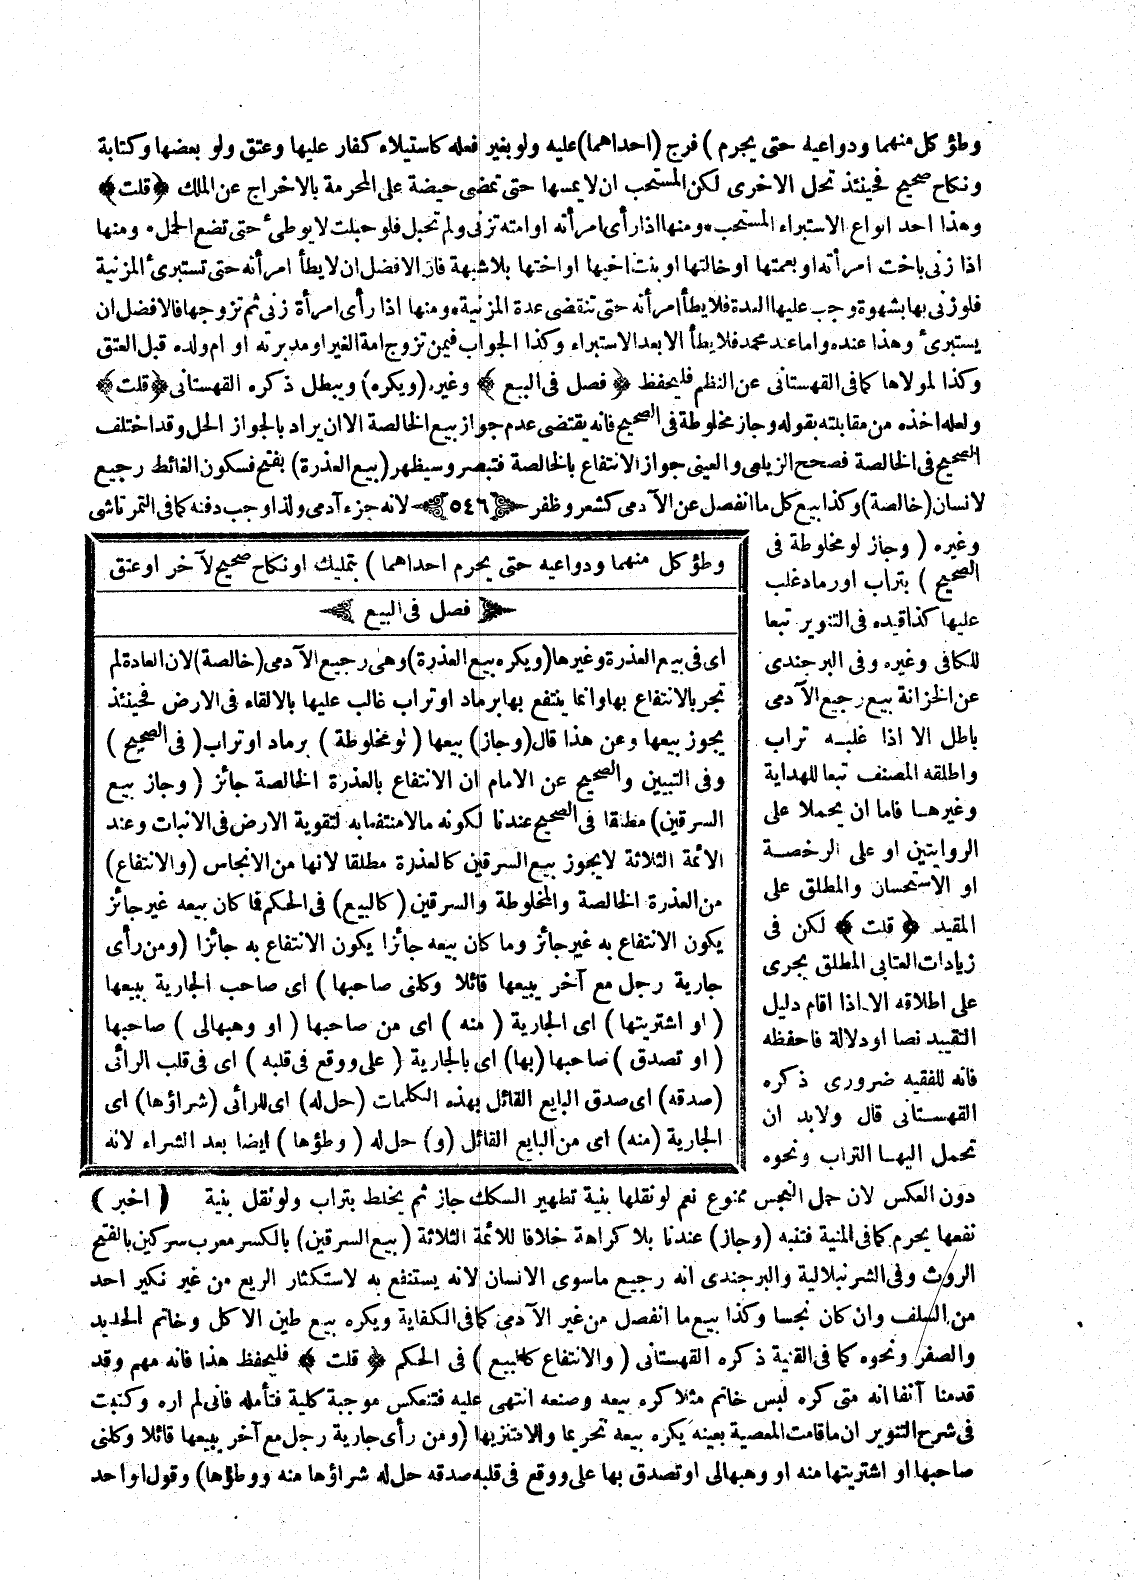 وطؤ كل منهما ودواعيه حتى يحرم ) فرج (احداهما) عليه ولو بغير فعله كاستيلاء كفار عليها وعتق ولو بعضها وكتابة
ونكاح صحيح فحينئذ تحل الاخرى لكن المستحب ان لايمسها حتى تمضى حيضة على المحرمة بالاخراج عن الملك ﴿ قلت ﴾
وهذا احد انواع الاستبراء المستحب * ومنها اذا رأى امرأته او امته تزنى ولم تحبل فلو حبلت لا يوطئ حتى تضع الحمل * ومنها
اذا زنى باخت امرأته او بعمتها او خالتها او بنت اخيها او اختها بلاشبهة فان الافضل ان لا يطأ امرأته حتى تستبرئ المزنية
فلو زنى بها بشهوة وجب عليها العدة فلا يطأ امرأته حتى تنقضى عدة المزنية * ومنها اذا رأى امرأة تزنى ثم تزوجها فالافضل ان
يستبرئ وهذا عنده واما عند محمد فلا يطأ الا بعد الاستبراء وكذا الجواب فيمن تزوج امة الغير او مدبرته او ام ولده قبل العتق
وكذا لمولاها كما فى القهستانى عن النظم فليحفظ ﴿ فصل فى البيع ﴾ وغيره (ويكره) ويبطل ذكره القهستانى ﴿ قلت ﴾
ولعله اخذه من مقابلته بقوله وجاز مخلوطة فى الصحيح فانه يقتضى عدم جواز بيع الخالصة الا ان يراد بالجواز الحل وقد اختلف
الصحيح فى الخالصة فصحح الزيلعى والعينى جواز الانتفاع بالخالصة فتبصر وسيظهر (بيع العذرة) بفتح فسكون الغائط رجيع
لانسان (خالصة) وكذا بيع كل ما انفصل عن الآدمى كشعر وظفر ﴿ ٥٤٦ ﴾ لانه جزء آدمى ولذا وجب دفنه كما فى التمرتاشى
وغيره ( وجاز لو مخلوطة فى
الصحيح ) بتراب او رماد غلب
عليها كذا قيده فى التنوير تبعا
للكافى وغيره وفى البرجندى
عن الخزانة بيع رجيع الآدمى
باطل الا اذا غلبه تراب
واطلقه المصنف تبعا للهداية
وغيرها فاما ان يحملا على
الروايتين او على الرخصة
او الاستحسان والمطلق على
المقيد ﴿ قلت ﴾ لكن فى
زيادات العتابى المطلق يجرى
على اطلاقه الا اذا اقام دليل
التقييد نصا او دلالة فاحفظه
فانه للفقيه ضرورى ذكره
القهستانى قال ولابد ان
تحمل اليها التراب ونحوه
وطؤ كل منهما ودواعيه حتى يحرم احداهما ) بتمليك او نكاح صحيح لآخر او عتق
﴿ فصل فى البيع ﴾
اى فى بيع العذرة وغيرها (ويكره بيع العذرة) وهى رجيع الآدمى (خالصة) لان العادة لم
تجر بالانتفاع بها وانما ينتفع بها برماد او تراب غالب عليها بالالقاء فى الارض فحينئذ
يجوز بيعها وعن هذا قال (وجاز) بيعها ( لو مخلوطة ) برماد او تراب ( فى الصحيح )
وفى التبيين والصحيح عن الامام ان الانتفاع بالعذرة الخالصة جائز ( وجاز بيع
السرقين) مطلقا فى الصحيح عندنا لكونه مالا منتفعا به لتقوية الارض فى الانبات وعند
الائمة الثلاثة لايجوز بيع السرقين كالعذرة مطلقا لانها من الانجاس (والانتفاع)
من العذرة الخالصة والمخلوطة والسرقين ( كالبيع ) فى الحكم فما كان بيعه غير جائز
يكون الانتفاع به غير جائز وما كان بيعه جائزا يكون الانتفاع به جائزا (ومن رأى
جارية رجل مع آخر يبيعها قائلا وكلنى صاحبها ) اى صاحب الجارية ببيعها
( او اشتريتها ) اى الجارية ( منه ) اى من صاحبها ( او وهبهالى ) صاحبها
( او تصدق ) صاحبها (بها) اى بالجارية ( على ووقع فى قلبه ) اى فى قلب الرائى
(صدقه) اى صدق البايع القائل بهذه الكلمات (حل له) اى للرائى (شراؤها) اى
الجارية (منه) اى من البايع القائل (و) حل له ( وطؤها ) ايضا بعد الشراء لانه
دون العكس لان حمل النجس ممنوع نعم لو نقلها بنية تطهير السكك جاز ثم يخلط بتراب ولو نقل بنية ( اخبر )
نفعها يحرم كما فى المنية فتنبه (وجاز) عندنا بلا كراهة خلافا للائمة الثلاثة ( بيع السرقين) بالكسر معرب سركين بالفتح
الروث وفى الشرنبلالية والبرجندى انه رجيع ماسوى الانسان لانه يستنفع به لاستكثار الريع من غير نكير احد
من السلف وان كان نجسا وكذا بيع ما انفصل من غير الآدمى كما فى الكفاية ويكره بيع طين الاكل وخاتم الحديد
والصفر ونحوه كما فى القنية ذكره القهستانى ( والانتفاع كالبيع ) فى الحكم ﴿ قلت ﴾ فليحفظ هذا فانه مهم وقد
قدمنا آنفا انه متى كره لبس خاتم مثلا كره بيعه وصنعه انتهى عليه فتنعكس موجبة كلية فتأمله فانى لم اره وكتبت
فى شرح التنوير ان ماقامت المعصية بعينه يكره بيعه تحريما والا فتنزيها (ومن رأى جارية رجل مع آخر يبيعها قائلا وكلنى
صاحبها او اشتريتها منه او وهبهالى او تصدق بها على ووقع فى قلبه صدقه حل له شراؤها منه ووطؤها) وقول اواحد